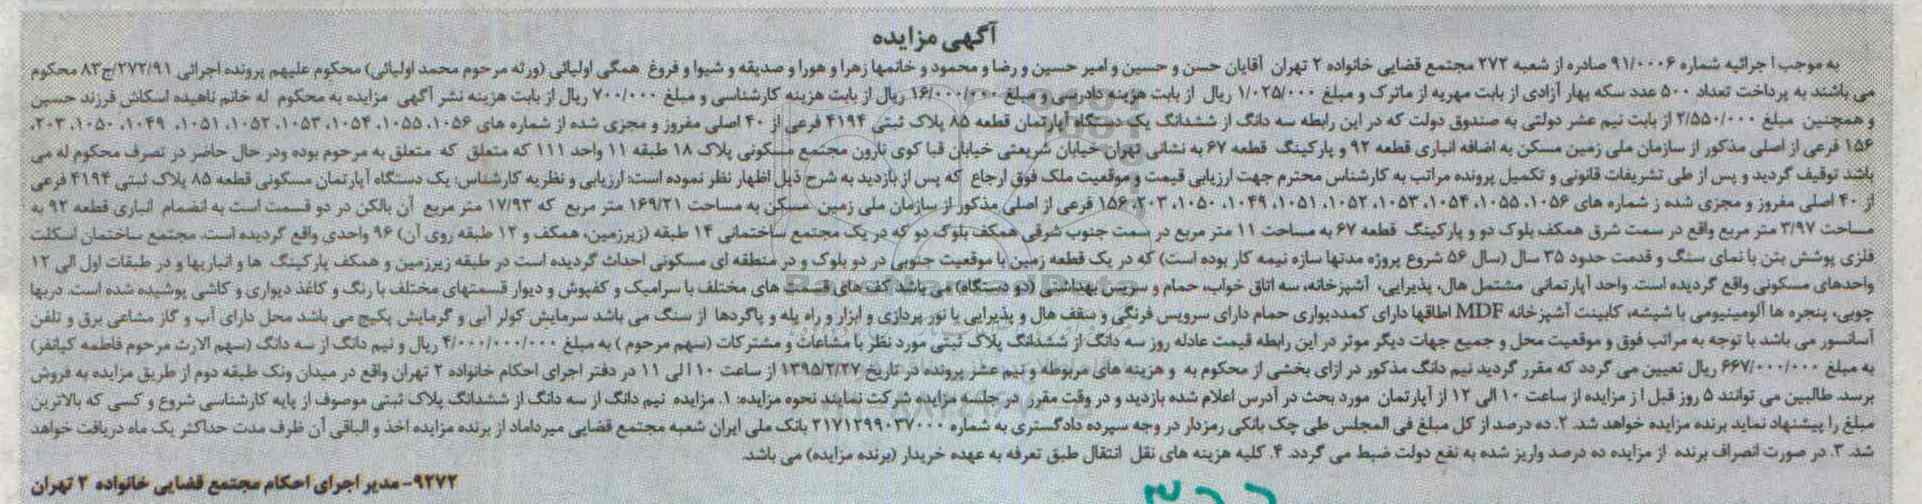 آگهی مزایده
به موجب اجرائیه شماره ۹۱/۰۰۰۶ صادره از شعبه ۲۷۲ مجتمع قضایی خانواده ۲ تهران آقایان حسن و حسین و امیر حسین و رضا و محمود و خانمها زهرا و هورا و صدیقه و شیوا و فروغ همگی اولیائی (ورثه مرحوم محمد اولیائی) محکوم علیهم پرونده اجرائی ۲۷۲/۹۱/ج۸۳ محکوم
می باشند به پرداخت تعداد ۵۰۰ عدد سکه بهار آزادی از بابت مهریه از ماترک و مبلغ ۱/۰۲۵/۰۰۰ ریال از بابت هزینه دادرسی و مبلغ ۱۶/۰۰۰/۰۰۰ ریال از بابت هزینه کارشناسی و مبلغ ۷۰۰/۰۰۰ ریال از بابت هزینه نشر آگهی مزایده به محکوم له خانم ناهیده اسکاش فرزند حسین
و همچنین مبلغ ۲/۵۵۰/۰۰۰ از بابت نیم عشر دولتی به صندوق دولت که در این رابطه سه دانگ از ششدانگ یک دستگاه آپارتمان قطعه ۸۵ پلاک ثبتی ۴۱۹۴ فرعی از ۴۰ اصلی مفروز و مجزی شده از شماره های ۱۰۵۶، ۱۰۵۵، ۱۰۵۴، ۱۰۵۳، ۱۰۵۲، ۱۰۵۱، ۱۰۴۹، ۱۰۵۰، ۲۰۳،
۱۵۶ فرعی از اصلی مذکور از سازمان ملی زمین مسکن به اضافه انباری قطعه ۹۲ و پارکینگ قطعه ۶۷ به نشانی تهران خیابان شریعتی خیابان قبا کوی نارون مجتمع مسکونی پلاک ۱۸ طبقه ۱۱ واحد ۱۱۱ که متعلق که متعلق به مرحوم بوده ودر حال حاضر در تصرف محکوم له می
باشد توقیف گردید و پس از طی تشریفات قانونی و تکمیل پرونده مراتب به کارشناس محترم جهت ارزیابی قیمت و موقعیت ملک فوق ارجاع که پس از بازدید به شرح ذیل اظهار نظر نموده است: ارزیابی و نظریه کارشناس: یک دستگاه آپارتمان مسکونی قطعه ۸۵ پلاک ثبتی ۴۱۹۴ فرعی
از ۴۰ اصلی مفروز و مجزی شده ز شماره های ۱۰۵۶، ۱۰۵۵، ۱۰۵۴، ۱۰۵۳، ۱۰۵۲، ۱۰۵۱، ۱۰۴۹، ۱۰۵۰، ۲۰۳، ۱۵۶ فرعی از اصلی مذکور از سازمان ملی زمین مسکن به مساحت ۱۶۹/۲۱ متر مربع که ۱۷/۹۳ متر مربع آن بالکن در دو قسمت است به انضمام انباری قطعه ۹۲ به
مساحت ۳/۹۷ متر مربع واقع در سمت شرق همکف بلوک دو و پارکینگ قطعه ۶۷ به مساحت ۱۱ متر مربع در سمت جنوب شرقی همکف بلوک دو که در یک مجتمع ساختمانی ۱۴ طبقه (زیرزمین، همکف و ۱۲ طبقه روی آن) ۹۶ واحدی واقع گردیده است. مجتمع ساختمان اسکلت
فلزی پوشش بتن با نمای سنگ و قدمت حدود ۳۵ سال (سال ۵۶ شروع پروژه مدتها سازه نیمه کار بوده است) که در یک قطعه زمین با موقعیت جنوبی در دو بلوک و در منطقه ای مسکونی احداث گردیده است در طبقه زیرزمین و همکف پارکینگ ها و انباریها و در طبقات اول الی ۱۲
واحدهای مسکونی واقع گردیده است. واحد آپارتمانی مشتمل هال، پذیرایی، آشپزخانه، سه اتاق خواب، حمام و سرویس بهداشتی (دو دستگاه) می باشد کف های قسمت های مختلف با سرامیک و کفپوش و دیوار قسمتهای مختلف با رنگ و کاغذ دیواری و کاشی پوشیده شده است. دربها
چوبی، پنجره ها آلومینیومی با شیشه، کابینت آشپزخانه MDF اطاقها دارای کمددیواری حمام دارای سرویس فرنگی و سقف هال و پذیرایی با نور پردازی و ابزار و راه پله و پاگردها از سنگ می باشد سرمایش کولر آبی و گرمایش پکیج می باشد محل دارای آب و گاز مشاعی برق و تلفن
آسانسور می باشد با توجه به مراتب فوق و موقعیت محل و جمیع جهات دیگر موثر در این رابطه قیمت عادله روز سه دانگ از ششدانگ پلاک ثبتی مورد نظر با مشاعات و مشترکات (سهم مرحوم ) به مبلغ ۴/۰۰۰/۰۰۰/۰۰۰ ریال و نیم دانگ از سه دانگ (سهم الارث مرحوم فاطمه کیانفر)
به مبلغ ۶۶۷/۰۰۰/۰۰۰ ریال تعیین می گردد که مقرر گردید نیم دانگ مذکور در ازای بخشی از محکوم به و هزینه های مربوطه و نیم عشر پرونده در تاریخ ۱۳۹۵/۲/۲۷ از ساعت ۱۰ الی ۱۱ در دفتر اجرای احکام خانواده ۲ تهران واقع در میدان ونک طبقه دوم از طریق مزایده به فروش
برسد. طالبین می توانند ۵ روز قبل از مزایده از ساعت ۱۰ الی ۱۲ از آپارتمان مورد بحث در آدرس اعلام شده بازدید و در وقت مقرر در جلسه مزایده شرکت نمایند نحوه مزایده: ۱. مزایده نیم دانگ از سه دانگ از ششدانگ پلاک ثبتی موصوف از پایه کارشناسی شروع و کسی که بالاترین
مبلغ را پیشنهاد نماید برنده مزایده خواهد شد. ۲. ده درصد از کل مبلغ فی المجلس طی چک بانکی رمزدار در وجه سپرده دادگستری به شماره ۲۱۷۱۲۹۹۰۳۷۰۰۰ بانک ملی ایران شعبه مجتمع قضایی میرداماد از برنده مزایده اخذ و الباقی آن ظرف مدت حداکثر یک ماه دریافت خواهد
شد. ۳. در صورت انصراف برنده از مزایده ده درصد واریز شده به نفع دولت ضبط می گردد. ۴. کلیه هزینه های نقل انتقال طبق تعرفه به عهده خریدار (برنده مزایده) می باشد.
۹۲۷۲- مدیر اجرای احکام مجتمع قضایی خانواده ۲ تهران